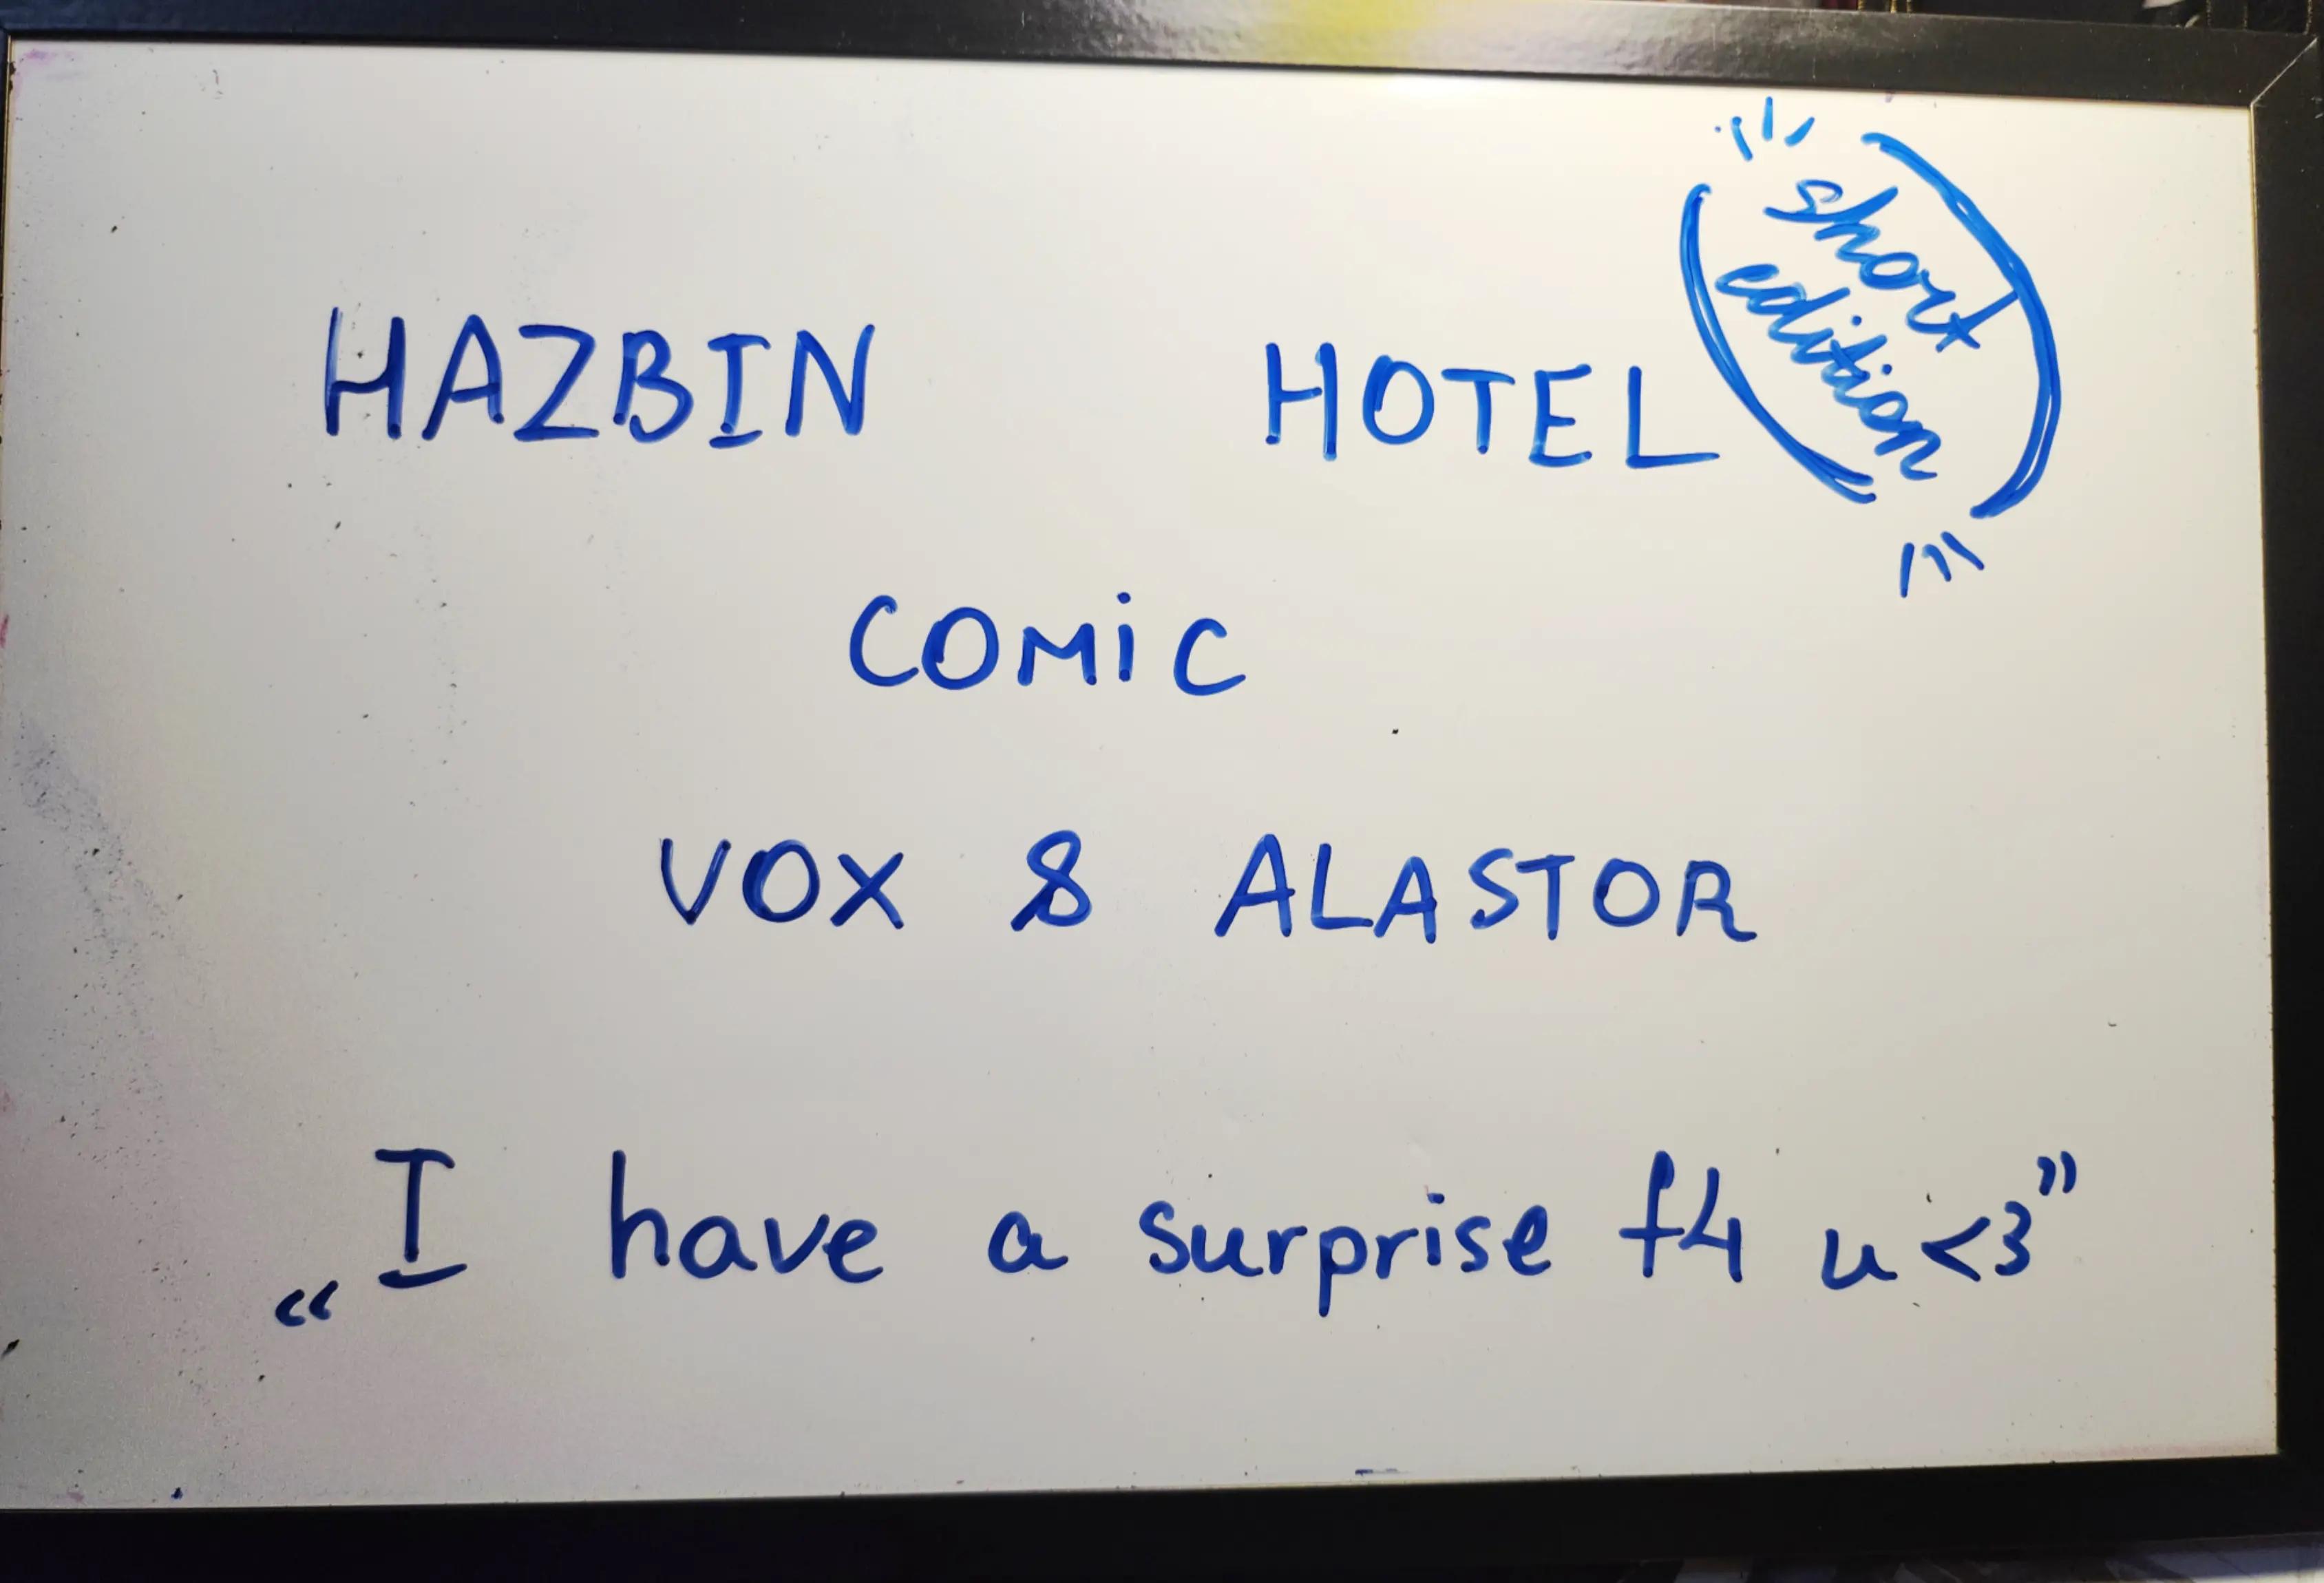 HAZBIN HOTEL
short
edition
COMiC
VOX & ALASTOR
„I have a surprise f4 u <3”